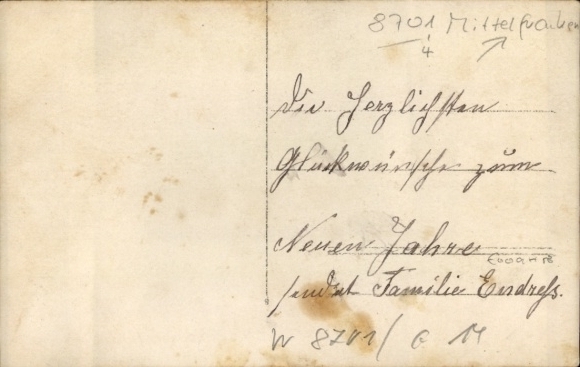 8701 Mittelfranken
4
Die Herzlichsten
Glückwünsche zum
Neuen Jahre
sendet Familie Endreß.
W 8701/ G M